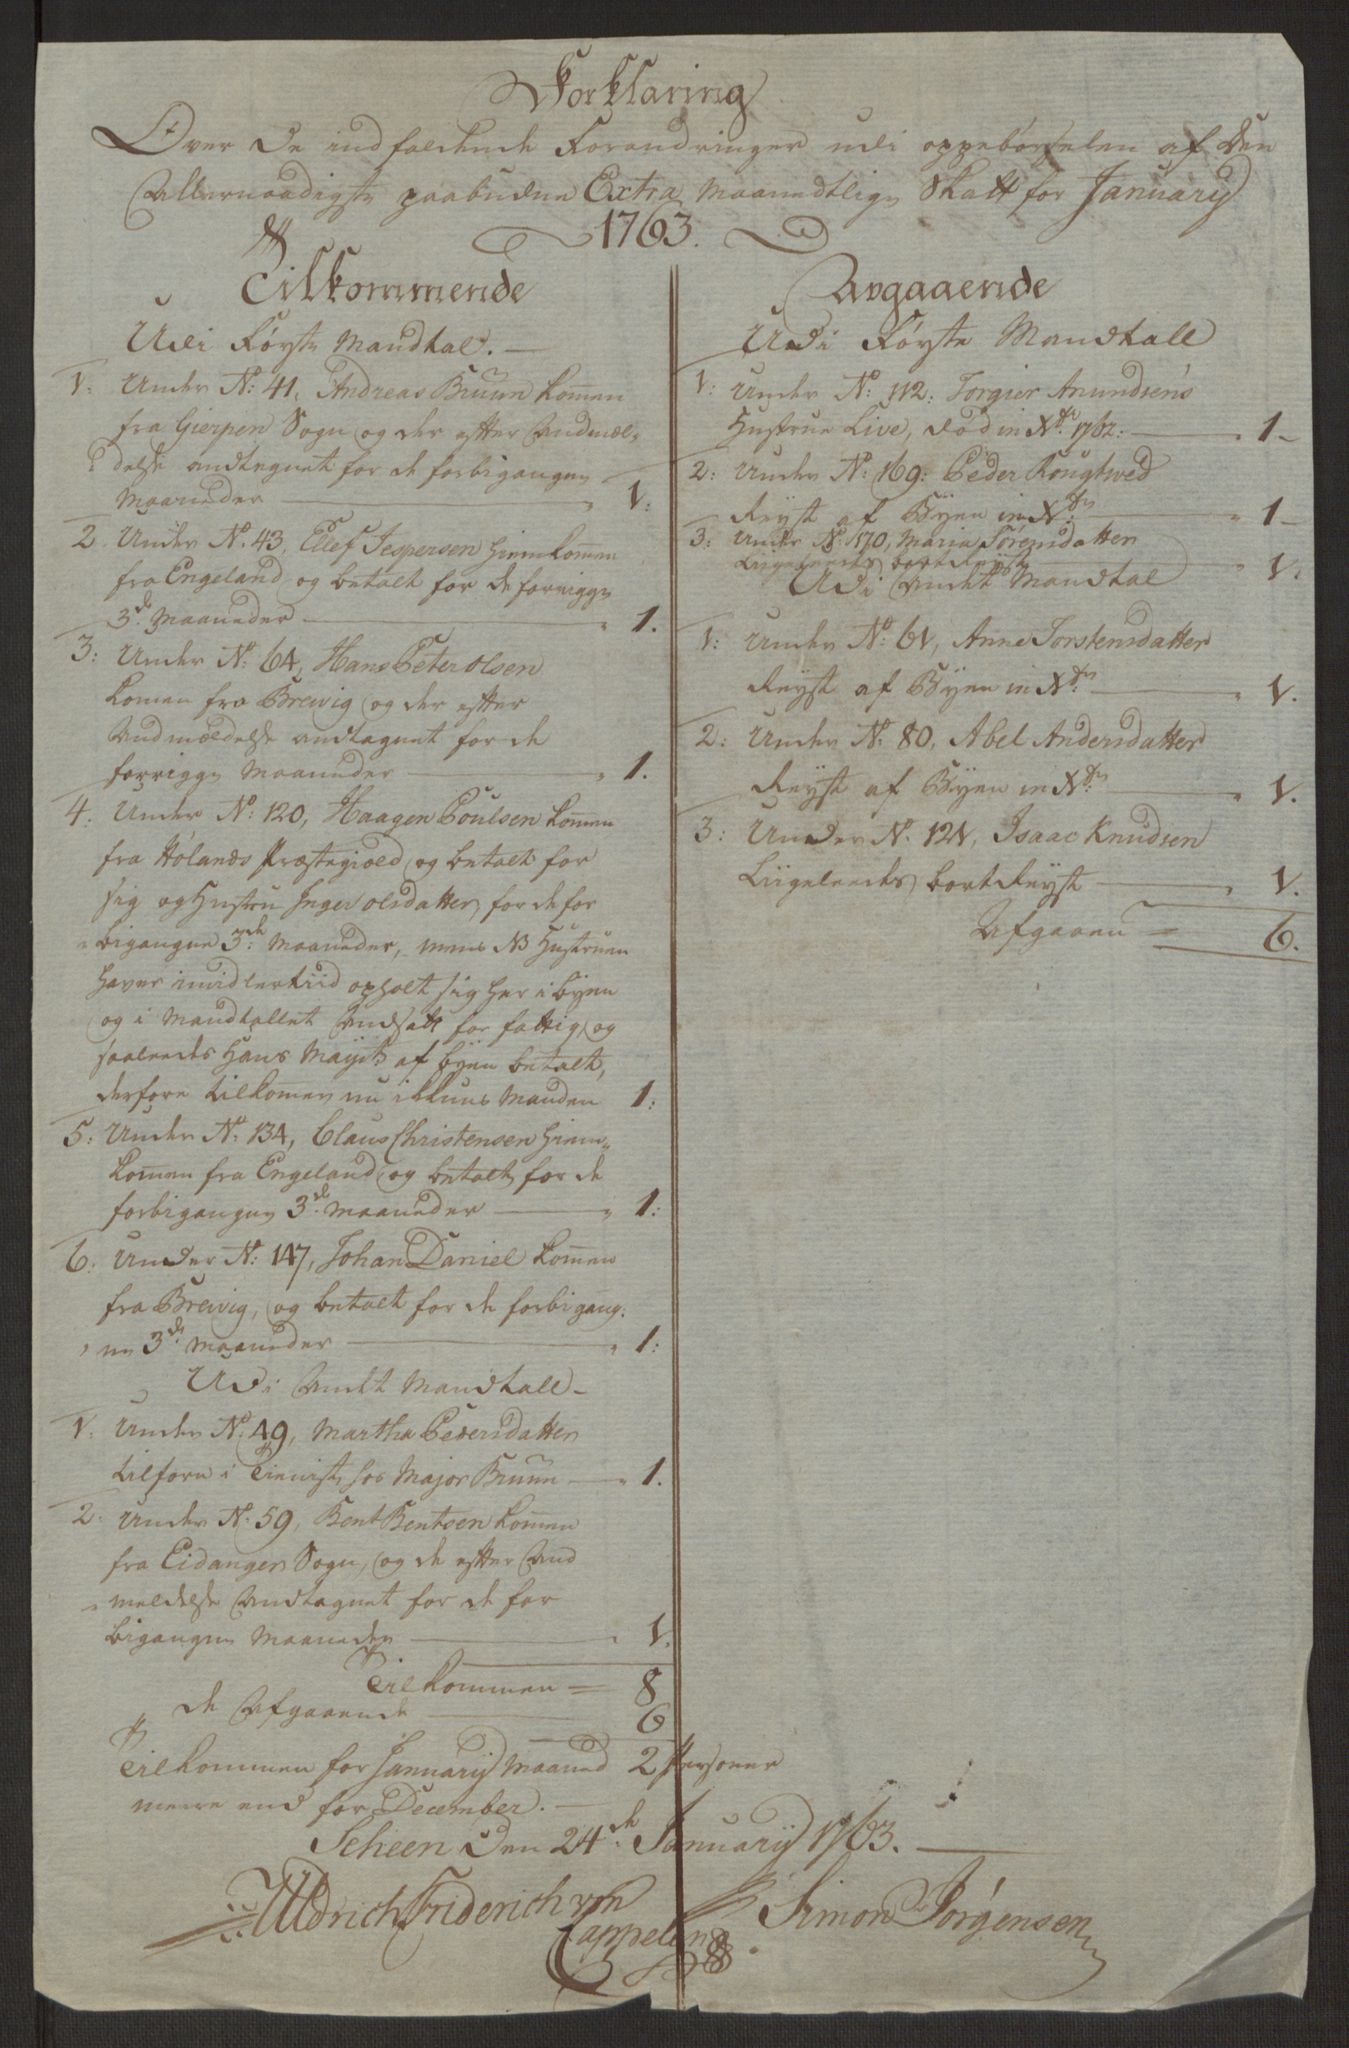 Forklaring
Over de indfaldende Forandringer udi oppebørselen af den
Allernaadigste paabudne Extra Maanedtlige Skatt for January
1763.
Tilkommende
Udi Første Mandtal.
1. Under No: 41, Andreas Bruun kom̄en
fra Gierpen Sogn og der efter Andmæl-
delse andtegnet for de forbigangen
Maaneder 1.
2. Under No. 43, Ellef Jespersen hiemkom̄en
fra Engeland og betalt for de forrigge
3de Maaneder 1.
3: Under No: 64, Hans Peter Olsen
komen fra Brewig og der efter
Andmældelse andtagnet for de
forrigge Maaneder 1.
4. Under No: 120, Haagen Poulsen kom̄en
fra Hólands Præstegield og betalt for
sig og Hustru Inger Olsdatter, for de for
bigangne 3de Maaneder, mens NB Hustruen
haver imidlertiid opholt sig her i byen
og i Mandtallet Andsatt for fattig, og
saaleeds Hans af byen betalt,
derfore tilkomer nu ikkuns Manden 1:
5: Under No: 134, Claus Christensen hiem-
kom̄en fra Engeland og betalt for de
forbigangen 3de Maaneder 1:
6: Under No: 147, Johan Daniel kom̄en
fra Brewig, og betalt for de forbigang-
ne 3de Maaneder 1:
Udi Andt Mandtall
1. Under No: 49, Martha Pedersdatter
tilforn i Tienist hos Major Bruun 1.
2. Under No: 59, Bent Bentsen kom̄en
fra Eidanger Sogn, og de efter And
meldelse Andtagnet for de for
bigangen Maaneder 1.
Tilkommen = 8
de Afgaaende 6
Tilkommen for January Maaned 2 Personer
meere end for December.
Avgaaende
Udi Første Mandtall
1: Under No: 112: Torgier Anundsens
Hustrue Live, død in Xbr: 1762: 1
2: Under No: 169: Peder Rougtwed
Reyst af Byen in Xbr: 1
3: Under No: 170, Maria Sørensdatter
Liigeleeds bortreyst 1.
Udi Andet Mandtal
1: Under No: 61, Anne Torstensdatter
Reyst af Byen in Xbr: 1.
2: Under No: 80, Abel Andersdatter
Reyst af Byen in Xbr: 1.
3: Under No. 121, Isaac Knudsen
Liigeleeds bortReyst 1.
Afgaaen = 6.
Scheen den 24de January 1763.
Uldrich Friderich von
Cappelen
Simon Jørgensen